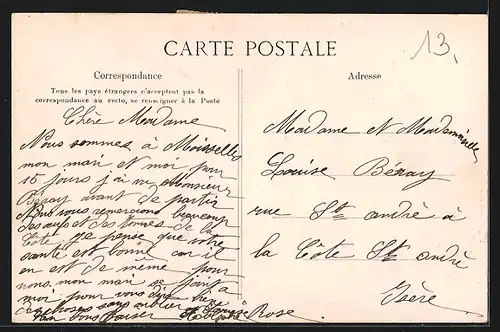 CARTE POSTALE
13.
Correspondance
Tous les pays étrangers n'acceptent pas la
correspondance au recto, se renseigner à la Poste
Chère Madame
Nous sommes à
mon mari et moi pour
15 jours j'ai vu Monsieur
Bézay avant de partir
Nous vous remercions beaucoup
des
Côte je pense que votre
santé est bonne car il
en est de même pour
nous, mon mari se joint à
moi pour vous dire
choses sans oublier
Rose
Adresse
Madame et Mademoiselle
Louise Bézay
rue St andré à
la Côte St andré
Isère